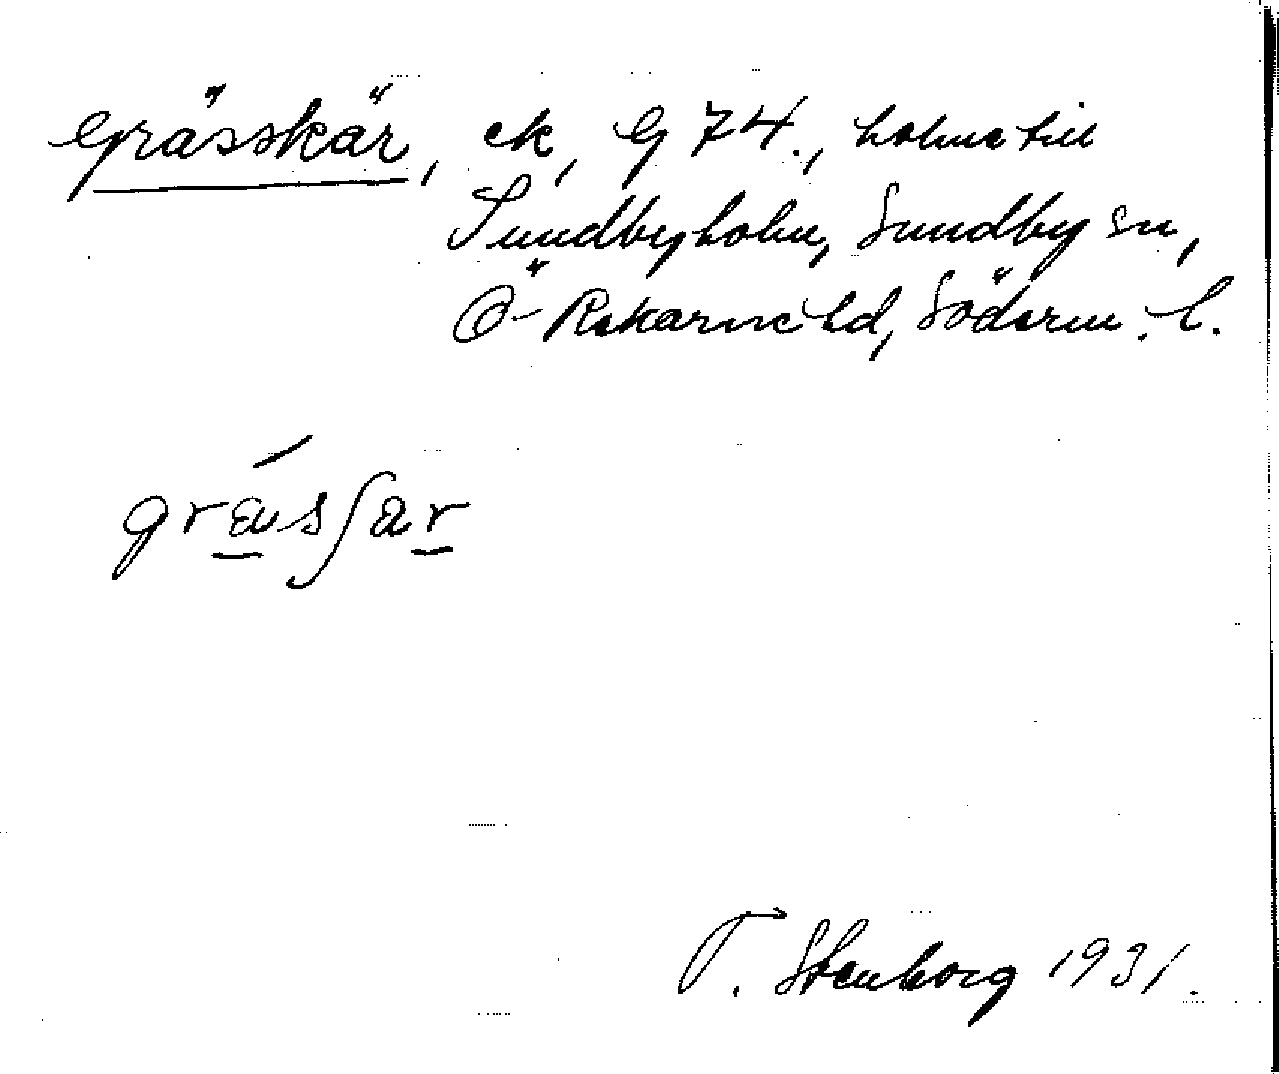 Grässkär, ek, G 74., holme till
Sundbyholm, Sundby sn,
Ö-Rekarne hd, Söderm. l.
græsʃær
T. Stenborg 1931.